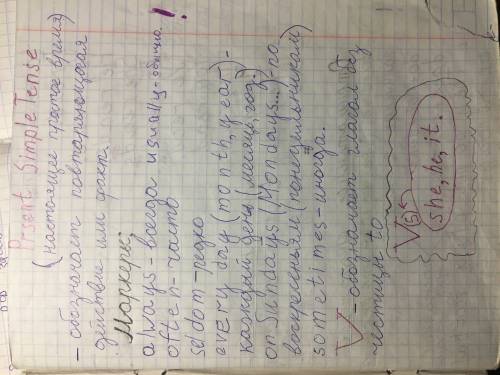 Prsent Simple Tense
(настоящее простое время)
- обозначает повторяющиеся
действие или факт.
Маркерк;
always - всегда usually - обычно!
often - часто
seldom - редко
every day (month, year) -
каждый день (месяц, год)
on Sundays (Mondays...) - по
воскресеньям (понедельникам)
sometimes - иногда.
V - обозначает глагол без
частицы to
V(s)
she, he, it.